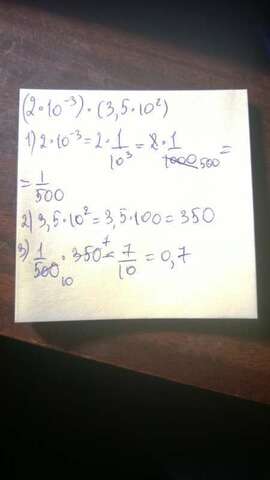 (2·10⁻³)·(3,5·10²)
1) 2·10⁻³ = 2·1/10³ = 2·1/1000 500 =
= 1/500
2) 3,5·10² = 3,5·100 = 350
3) 1/500 10 · 350 7 = 7/10 = 0,7